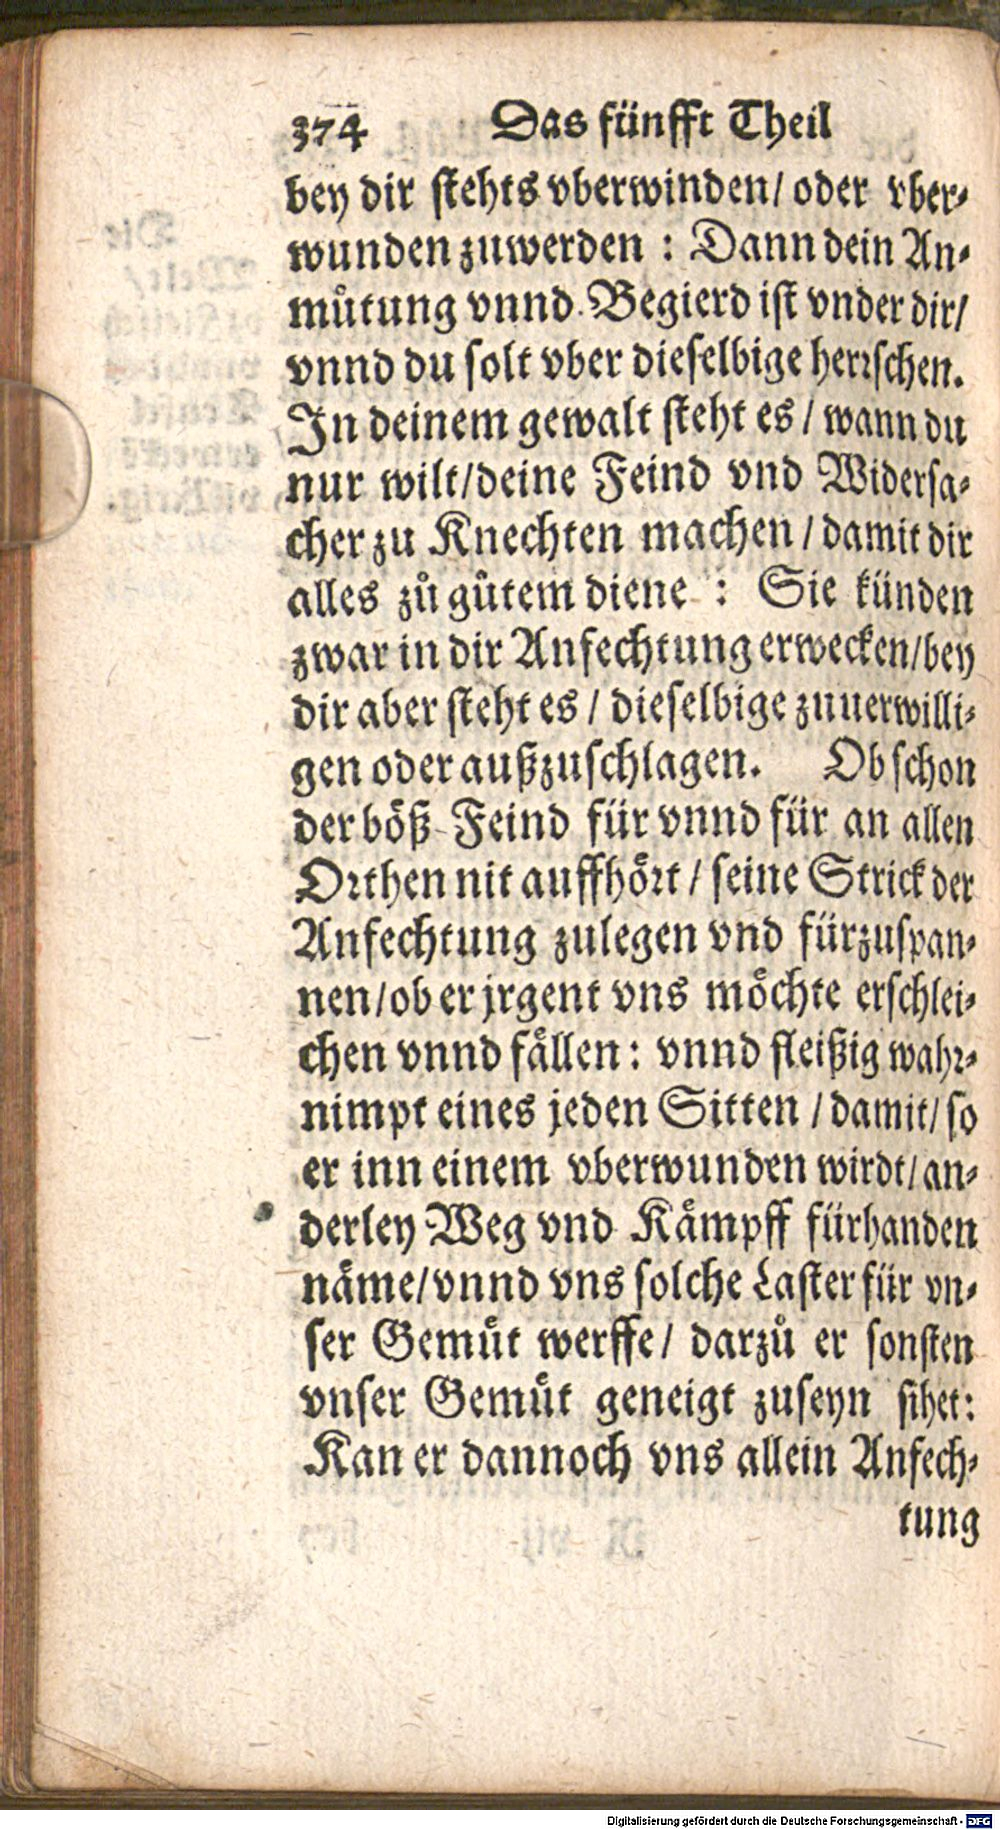 374 Das fünfft Theil
bey dir stehts vberwinden/ oder vber-
wunden zuwerden : Dann dein An-
mu̇tung vnnd Begierd ist vnder dir/
vnnd du solt vber dieselbige herrschen.
In deinem gewalt steht es / wann du
nur wilt/deine Feind vnd Widersa-
cher zu Knechten machen / damit dir
alles zů gůtem diene : Sie künden
zwar in dir Anfechtung erwecken/bey
dir aber steht es / dieselbige zuuerwilli-
gen oder außzuschlagen. Ob schon
der böß Feind für vnnd für an allen
Orthen nit auffhört / seine Strick der
Anfechtung zulegen vnd fürzuspan-
nen/ob er jrgent vns möchte erschlei-
chen vnnd fällen: vnnd fleißig wahr-
nimpt eines jeden Sitten / damit/ so
er inn einem vberwunden wirdt/ an-
derley Weg vnd Kämpff fürhanden
näme/vnnd vns solche Laster für vn-
ser Gemüt werffe/ darzů er sonsten
vnser Gemüt geneigt zuseyn sihet:
Kan er dannoch vns allein Anfech-
tung
Digitalisierung gefördert durch die Deutsche Forschungsgemeinschaft - DFG